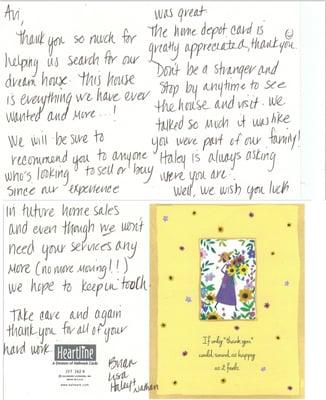 Avi,
Thank you so much for
helping us search for our
dream house. This house
is everything we have ever
wanted and more...!
We will be sure to
recommend you to anyone
who's looking to sell or buy
since our experience
was great
The home depot card is
greatly appreciated, thank you.
Don't be a stranger and
stop by anytime to see
the house and visit. We
talked so much it was like
you were part of our family!
Haley is always asking
were you are.
Well, we wish you luck
in future home sales
and even though we won't
need your services any
more (no more moving!!)
we hope to keep in touch.
Take care and again
thank you for all of your
hard work.
Heartline
A Division of Hallmark Cards
www.hallmark.com
Brian
Lisa
Haley &
If only "thank you"
could sound as happy
as it feels.